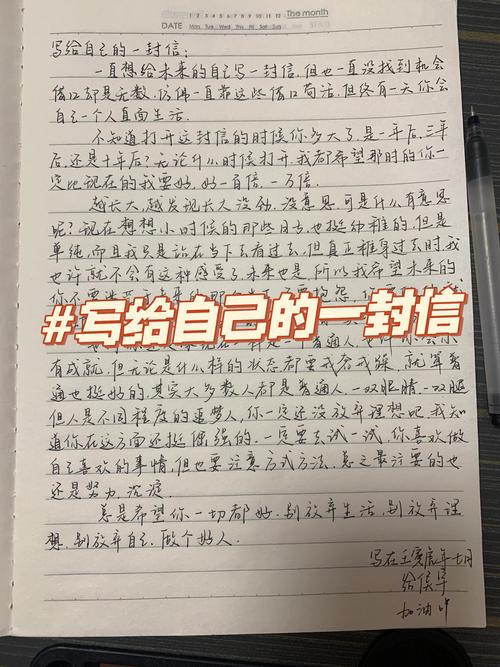 1 2 3 4 5 6 7 8 9 10 11 12 The month
DATE Mon Tue Wed Thu Fri Sat Sun
写给自己的一封信:
一直想给未来的自己写一封信,但也一直没找到机会
借口却是无数,仿佛一直靠这些借口苟活,但终有一天你会
自己一个人直面生活。
不知道打开这封信的时候你多大了,是一年后,三年
后,还是十年后?无论什么时候打开,我都希望那时的你一
定比现在的我要好,好一百倍,一万倍.
越长大,越发现长大没劲,没意思,可是什么有意思
呢?现在想想小时候的那些日子,也挺幼稚的,但是
单纯,而且我只是站在当下去看过去,但真正推身过去时,我
也许就不会有这种感受了,未来也是,所以我希望未来的
#写给自己的一封信
有成就,但无论是什么样的状态都要戒奢戒躁,就算普
通也挺好的,其实大多数人都是普通人,一双眼睛,一双腿
但人是不同程度的追梦人,你一定还没放弃理想吧,我知
道你在这方面还挺倔强的,一定要去试一试,你喜欢做
自己喜欢的事情,但也要注意方式方法,总之最主要的也
还是努力,沉淀.
总是希望你一切都好,别放弃生活,别放弃理
想,别放弃自己,做个好人.
写在壬寅虎年七月
给侯华
加油